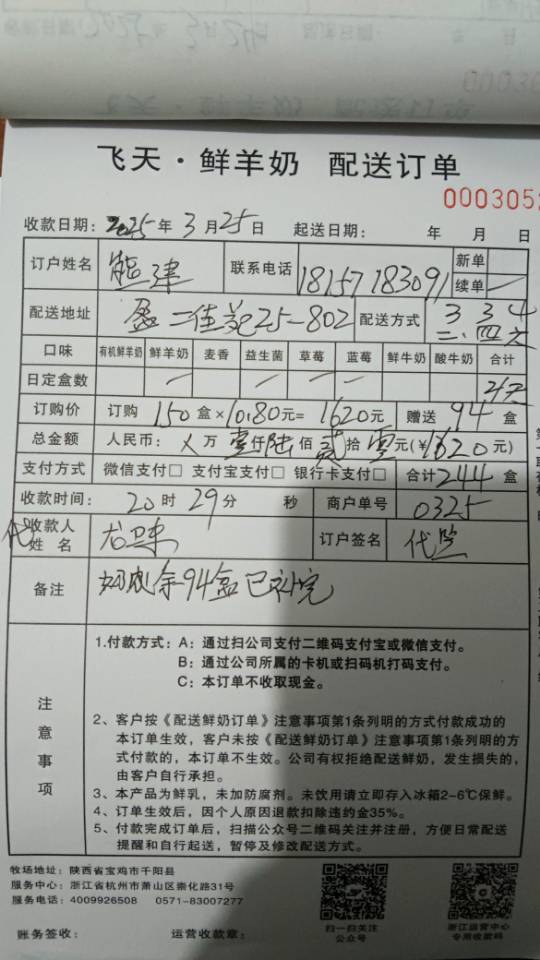 飞天·鲜羊奶 配送订单
000305
收款日期：2025年3月25日 起送日期： 年 月 日
订户姓名 熊津 联系电话 18157183091 新单
续单
配送地址 二佳苑25-802 配送方式 3 3 4
二、四、六
口味 有机鲜羊奶 鲜羊奶 麦香 益生菌 草莓 蓝莓 鲜牛奶 酸牛奶 合计
日定盒数
订购价 订购 150 盒×10.80元=1620元 赠送 94 盒
总金额 人民币：×万壹仟陆佰贰拾零元(￥1620元)
支付方式 微信支付□ 支付宝支付□ 银行卡支付□ 合计244盒
收款时间： 20时29分 秒 商户单号 0325
代收款人
姓名 订户签名 代
备注 余94盒已补完
注意事项
1.付款方式：A：通过扫公司支付二维码支付宝或微信支付。
B：通过公司所属的卡机或扫码机打码支付。
C：本订单不收取现金。
2、客户按《配送鲜奶订单》注意事项第1条列明的方式付款成功的
本订单生效，客户未按《配送鲜奶订单》注意事项第1条列明的方
式付款的，本订单不生效。公司有权拒绝配送鲜奶，发生损失的，
由客户自行承担。
3、本产品为鲜乳，未加防腐剂。未饮用请立即存入冰箱2-6℃保鲜。
4、订单生效后，因个人原因退款扣除违约金35%。
5、付款完成订单后，扫描公众号二维码关注并注册，方便日常配送
提醒和自行起送，暂停及修改配送方式。
牧场地址：陕西省宝鸡市千阳县
服务中心：浙江省杭州市萧山区崇化路31号
服务电话：4009926508 0571-83007277
扫一扫关注
公众号
浙江运营中心
专用收款码
账务签收： 运营收款章：